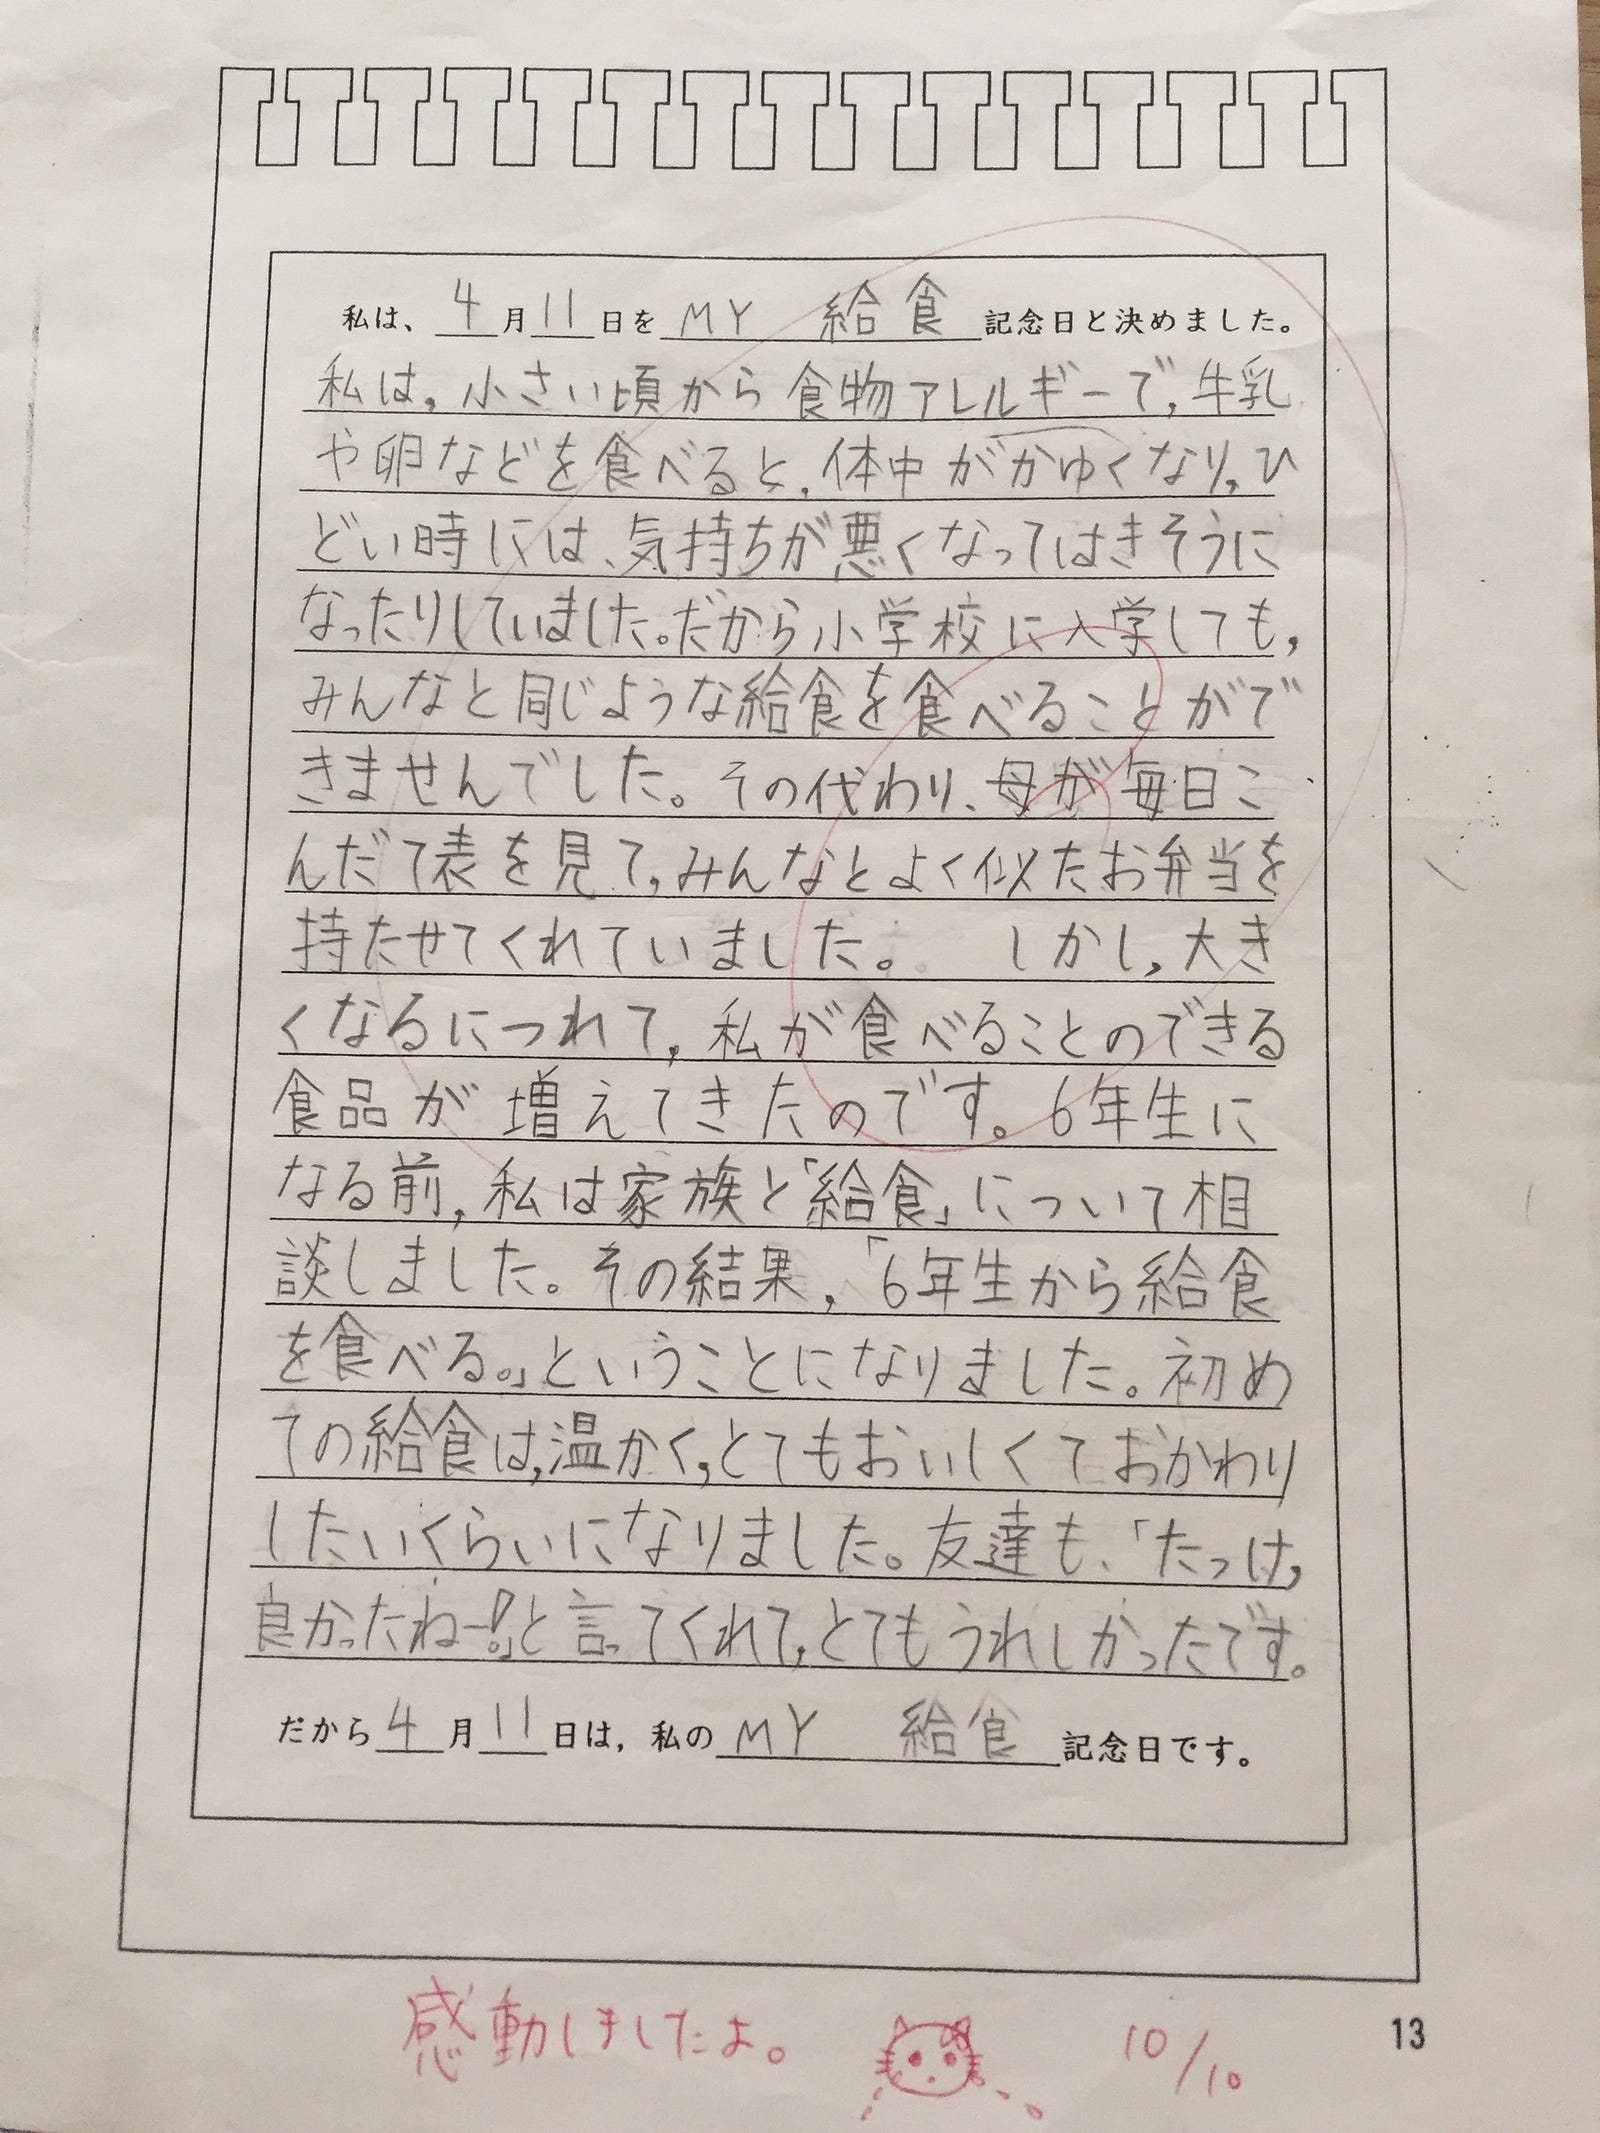 私は、4月11日をMY 給食記念日と決めました。
私は,小さい頃から食物アレルギーで,牛乳
や卵などを食べると,体中がかゆくなり,ひ
どい時には、気持ちが悪くなってはきそうに
なったりしていました。だから小学校に入学しても,
みんなと同じような給食を食べることがで
きませんでした。その代わり、母が毎日こ
んだて表を見て,みんなとよく似たお弁当を
持たせてくれていました。 しかし,大き
くなるにつれて,私が食べることのできる
食品が増えてきたのです。6年生に
なる前,私は家族と「給食」について相
談しました。その結果,「6年生から給食
を食べる。」ということになりました。初め
ての給食は,温かく,とてもおいしくておかわり
したいくらいになりました。友達も、「たっけ,
良かったねー!。」と言ってくれて,とてもうれしかったです。
だから4月11日は,私のMY 給食記念日です。
感動しましたよ。 10/10
13